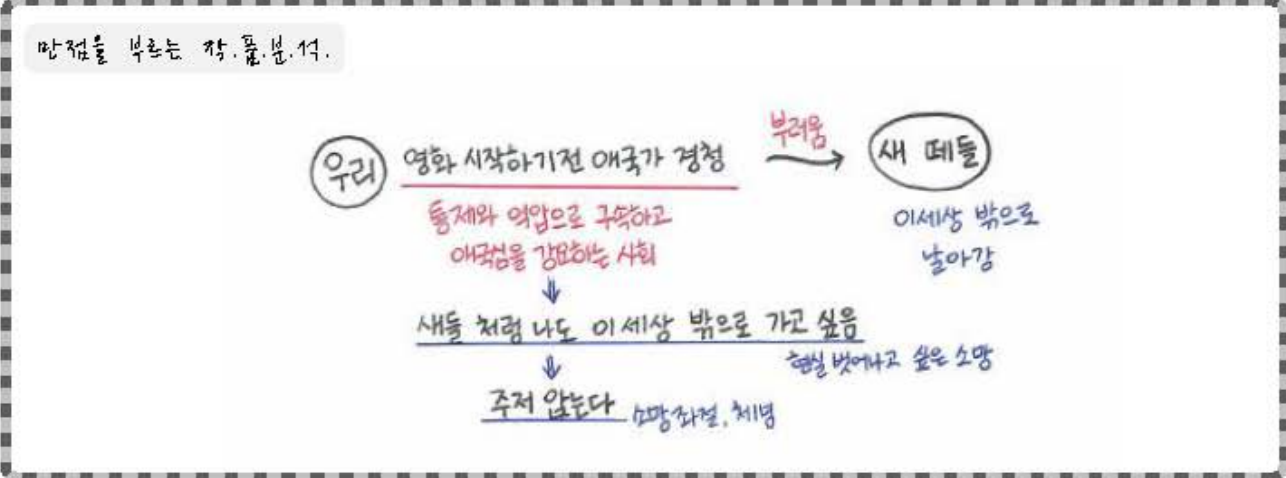 만점을 부르는 작.품.분.석.
우리 영화 시작하기전 애국가 경청 부러움 새 떼들
통제와 억압으로 구속하고
애국심을 강요하는 사회
이세상 밖으로
날아감
새들 처럼 나도 이 세상 밖으로 가고 싶음
현실 벗어나고 싶은 소망
주저 앉는다 소망 좌절, 체념